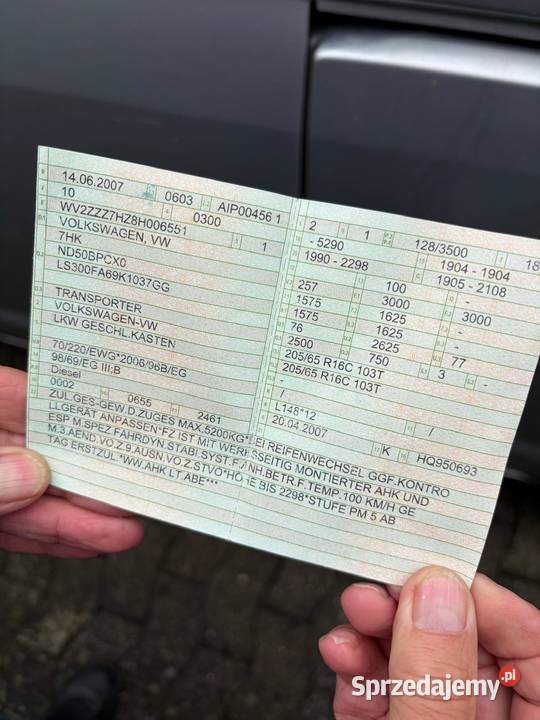 14.06.2007 0603 AIP00456 1
10 0300
WV2ZZZ7HZ8H006551
VOLKSWAGEN, VW 1
7HK
ND50BPCX0
LS300FA69K1037GG
TRANSPORTER
VOLKSWAGEN-VW
LKW GESCHL.KASTEN
70/220/EWG*2006/96B/EG
98/69/EG III;B
Diesel
0002 0655 2461
2 1 128/3500 18
- 5290 1904 - 1904
1990 - 2298 1905 - 2108
257 100 -
1575 3000 3000
1575 1625 -
76 1625 -
2500 2625 77
205/65 R16C 103T 750 3 -
205/65 R16C 103T
-
/
L148*12 /
20.04.2007 K HQ950693
ZUL.GES-GEW.D.ZUGES MAX.5200KG*BEI REIFENWECHSEL GGF.KONTRO
LLGERÄT ANPASSEN*FZ IST MIT WERKSSEITIG MONTIERTER AHK UND
ESP M.SPEZ.FAHRDYN.STABI.SYST.F.ANH.BETR.F.TEMP.100 KM/H GE
M.3.AEND.VO Z.9.AUSN.VO Z.STVO*HÖHE BIS 2298*STUFE PM 5 AB
TAG ERSTZUL.*WW.AHK LT.ABE***
Sprzedajemy.pl